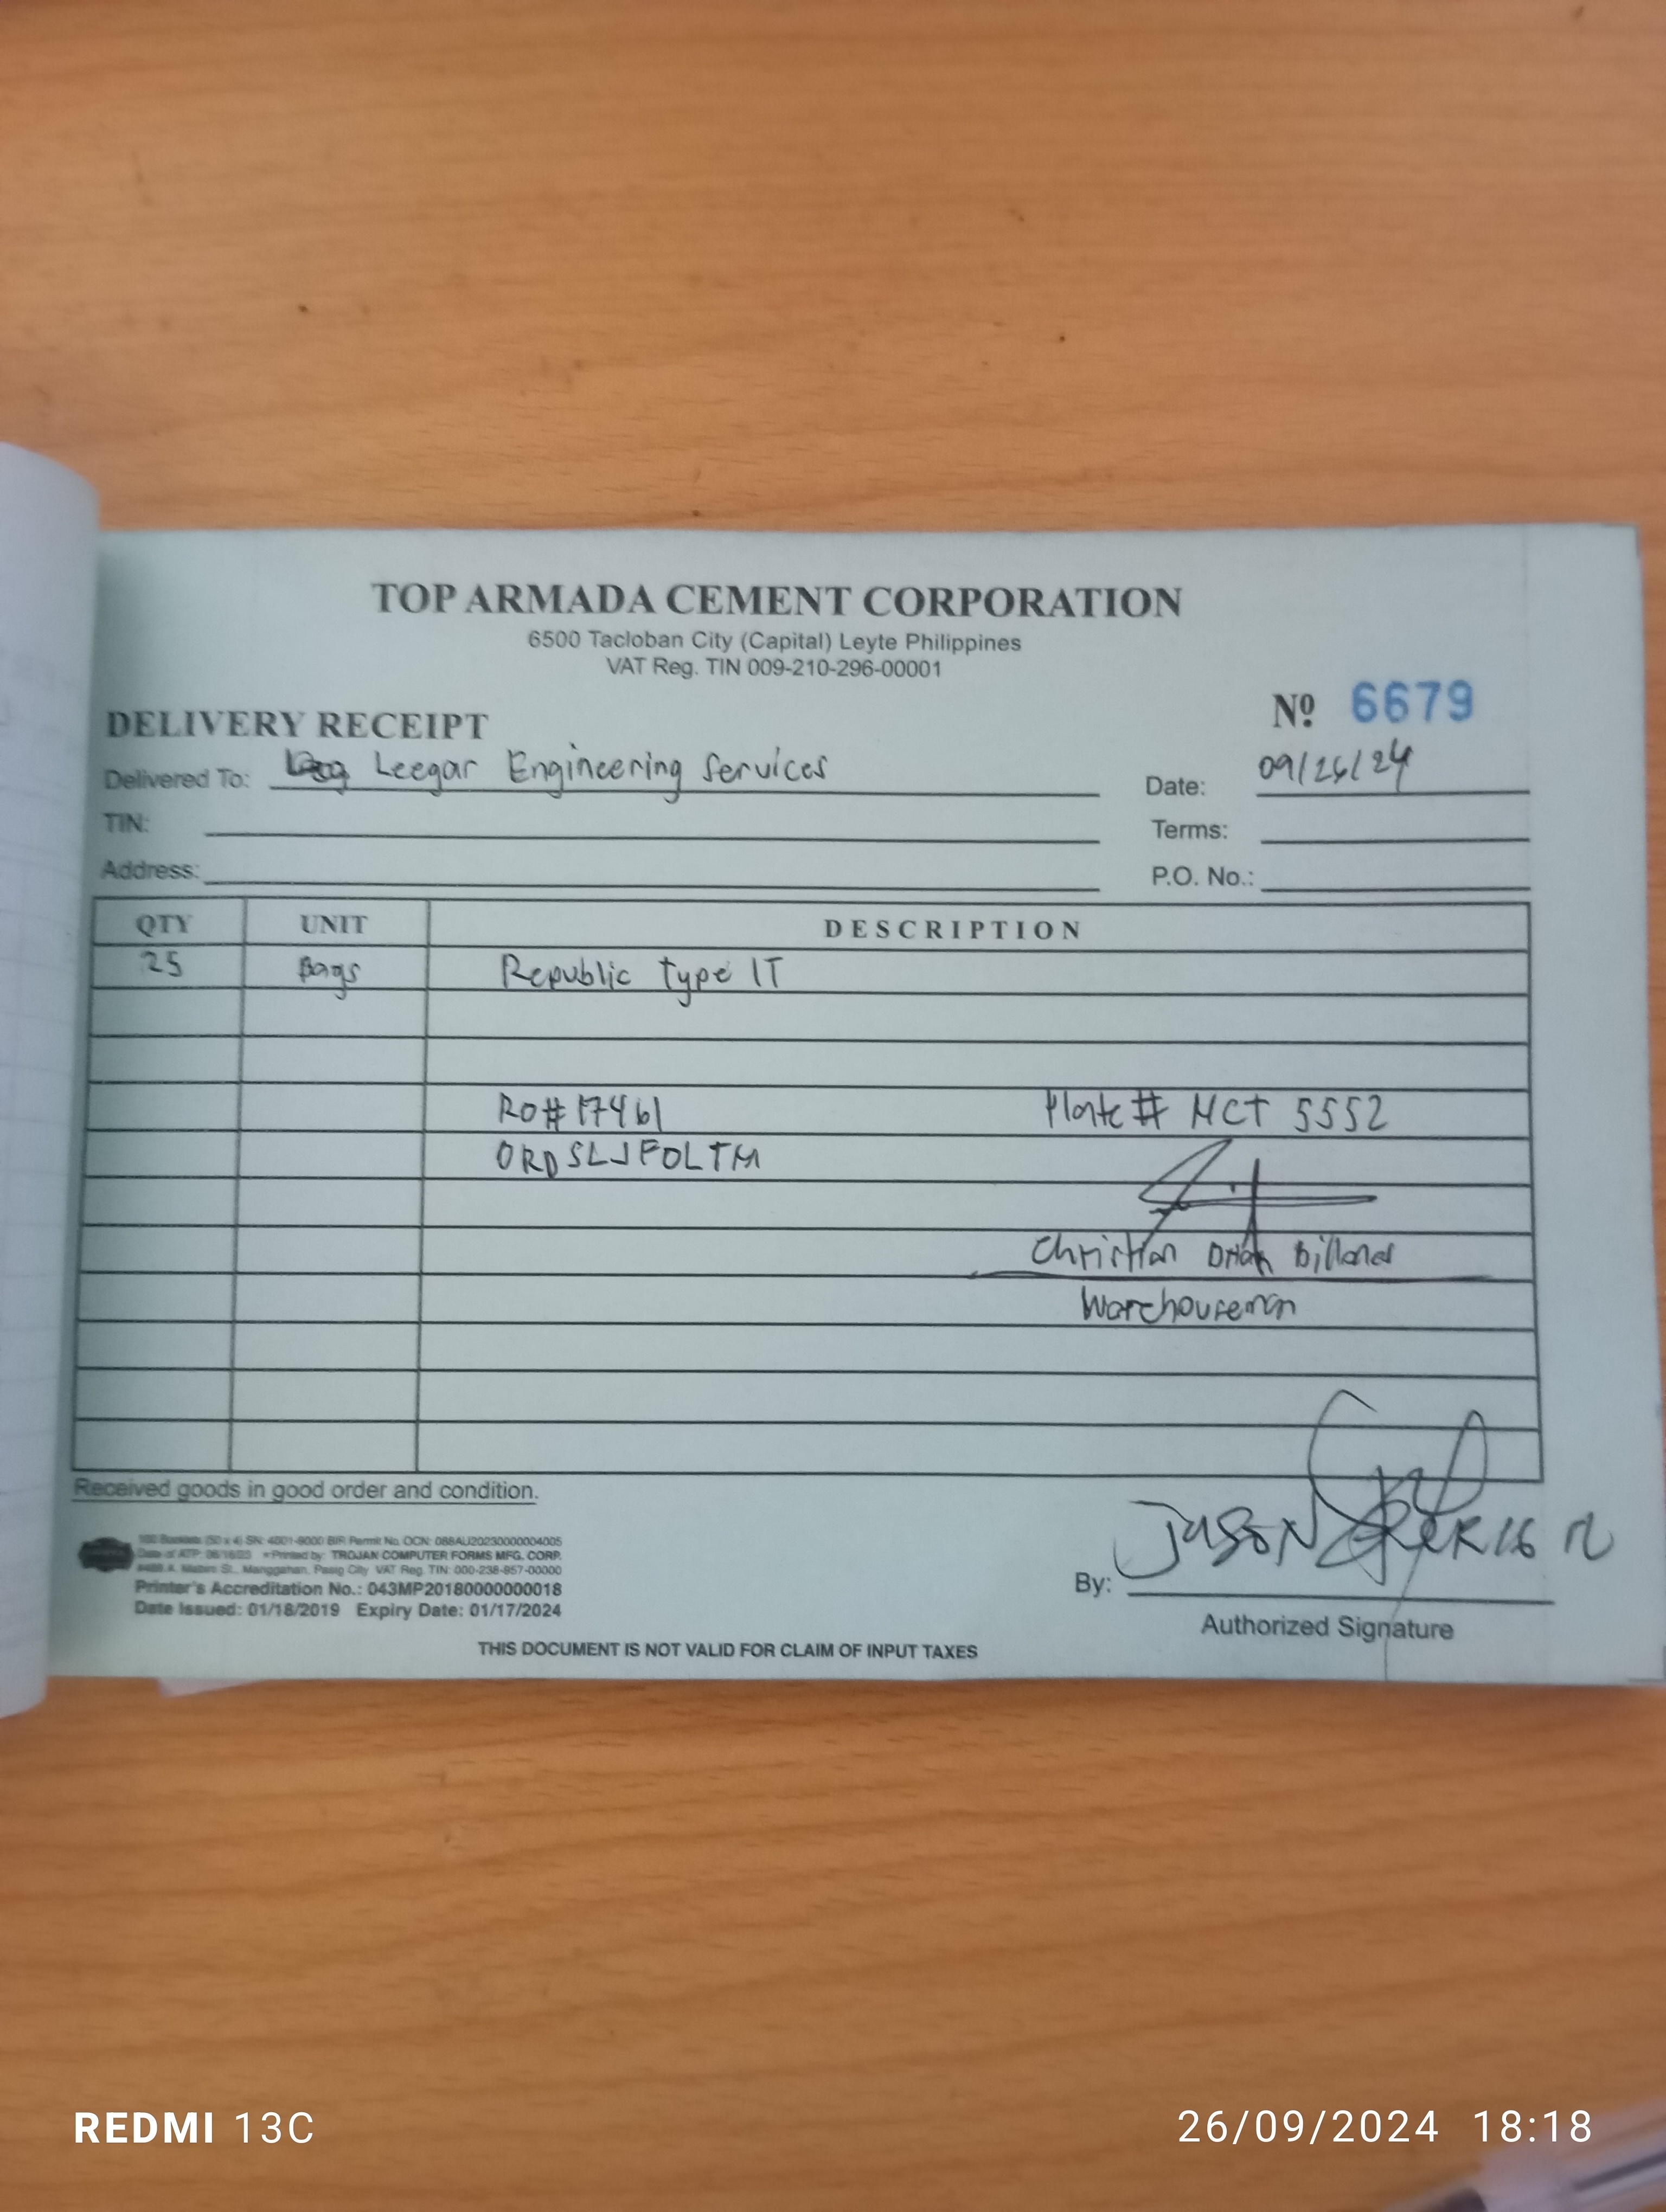 TOP ARMADA CEMENT CORPORATION
6500 Tacloban City (Capital) Leyte Philippines
VAT Reg. TIN 009-210-296-00001
Nº 6679
DELIVERY RECEIPT
Delivered To: Leegar Engineering Services
Date: 09/26/24
TIN:
Terms:
Address:
P.O. No.:
QTY UNIT DESCRIPTION
25 Bags Republic type IT
RO# 17461 Plate #
ORDSLJFOLTM
Christian
Warehouseman
Received goods in good order and condition.
100 Booklets (50 x 4) SN: 4001-9000 BIR Permit No. OCN: 088AU20230000004005
Printed by: TROJAN COMPUTER FORMS MFG. CORP.
Manggahan, Pasig City VAT Reg. TIN: 000-238-857-00000
Printer's Accreditation No.: 043MP20180000000018
Date Issued: 01/18/2019 Expiry Date: 01/17/2024
JASON
By:
Authorized Signature
THIS DOCUMENT IS NOT VALID FOR CLAIM OF INPUT TAXES
REDMI 13C
26/09/2024 18:18